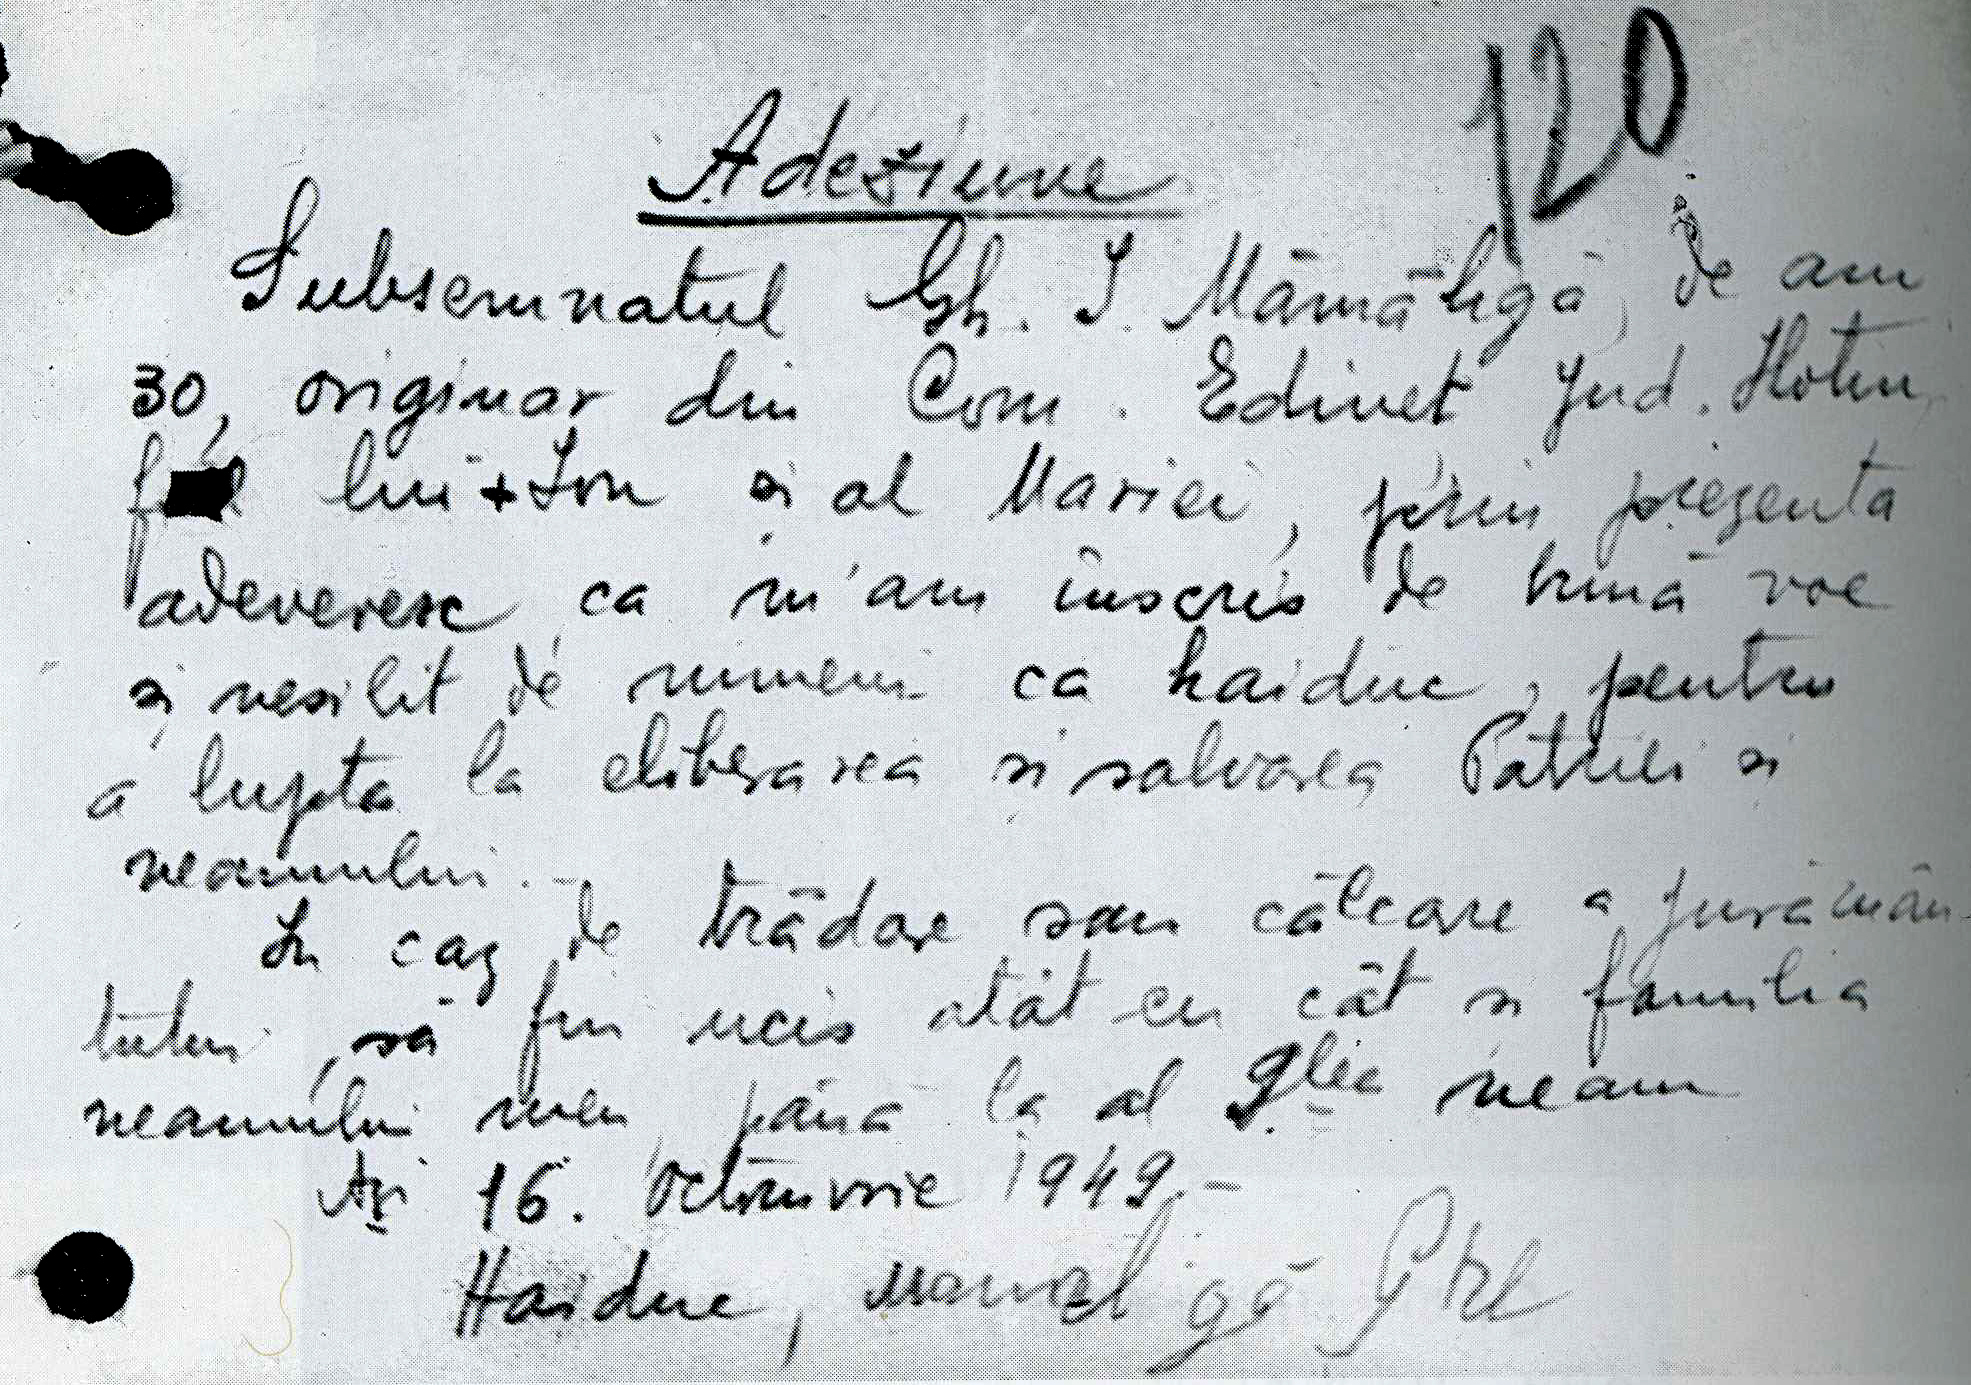 120
Adeziune
Subsemnatul Gh. I. Mămăligă, de ani
30, originar din Com. Edineț Jud. Hotin,
lui + Ion și al Mariei, prin prezenta
adeveresc ca m'am înscris de bună voe
și nesilit de nimeni ca haiduc, pentru
a lupta la eliberarea și salvarea Patriei și
neamului.-
In caz de trădare sau călcare a jurămân-
tului, să fiu ucis atât eu cât și familia
neamului meu până la al 9lea neam
Azi 16. Octomvrie 1949.-
Haiduc, Mamaligă